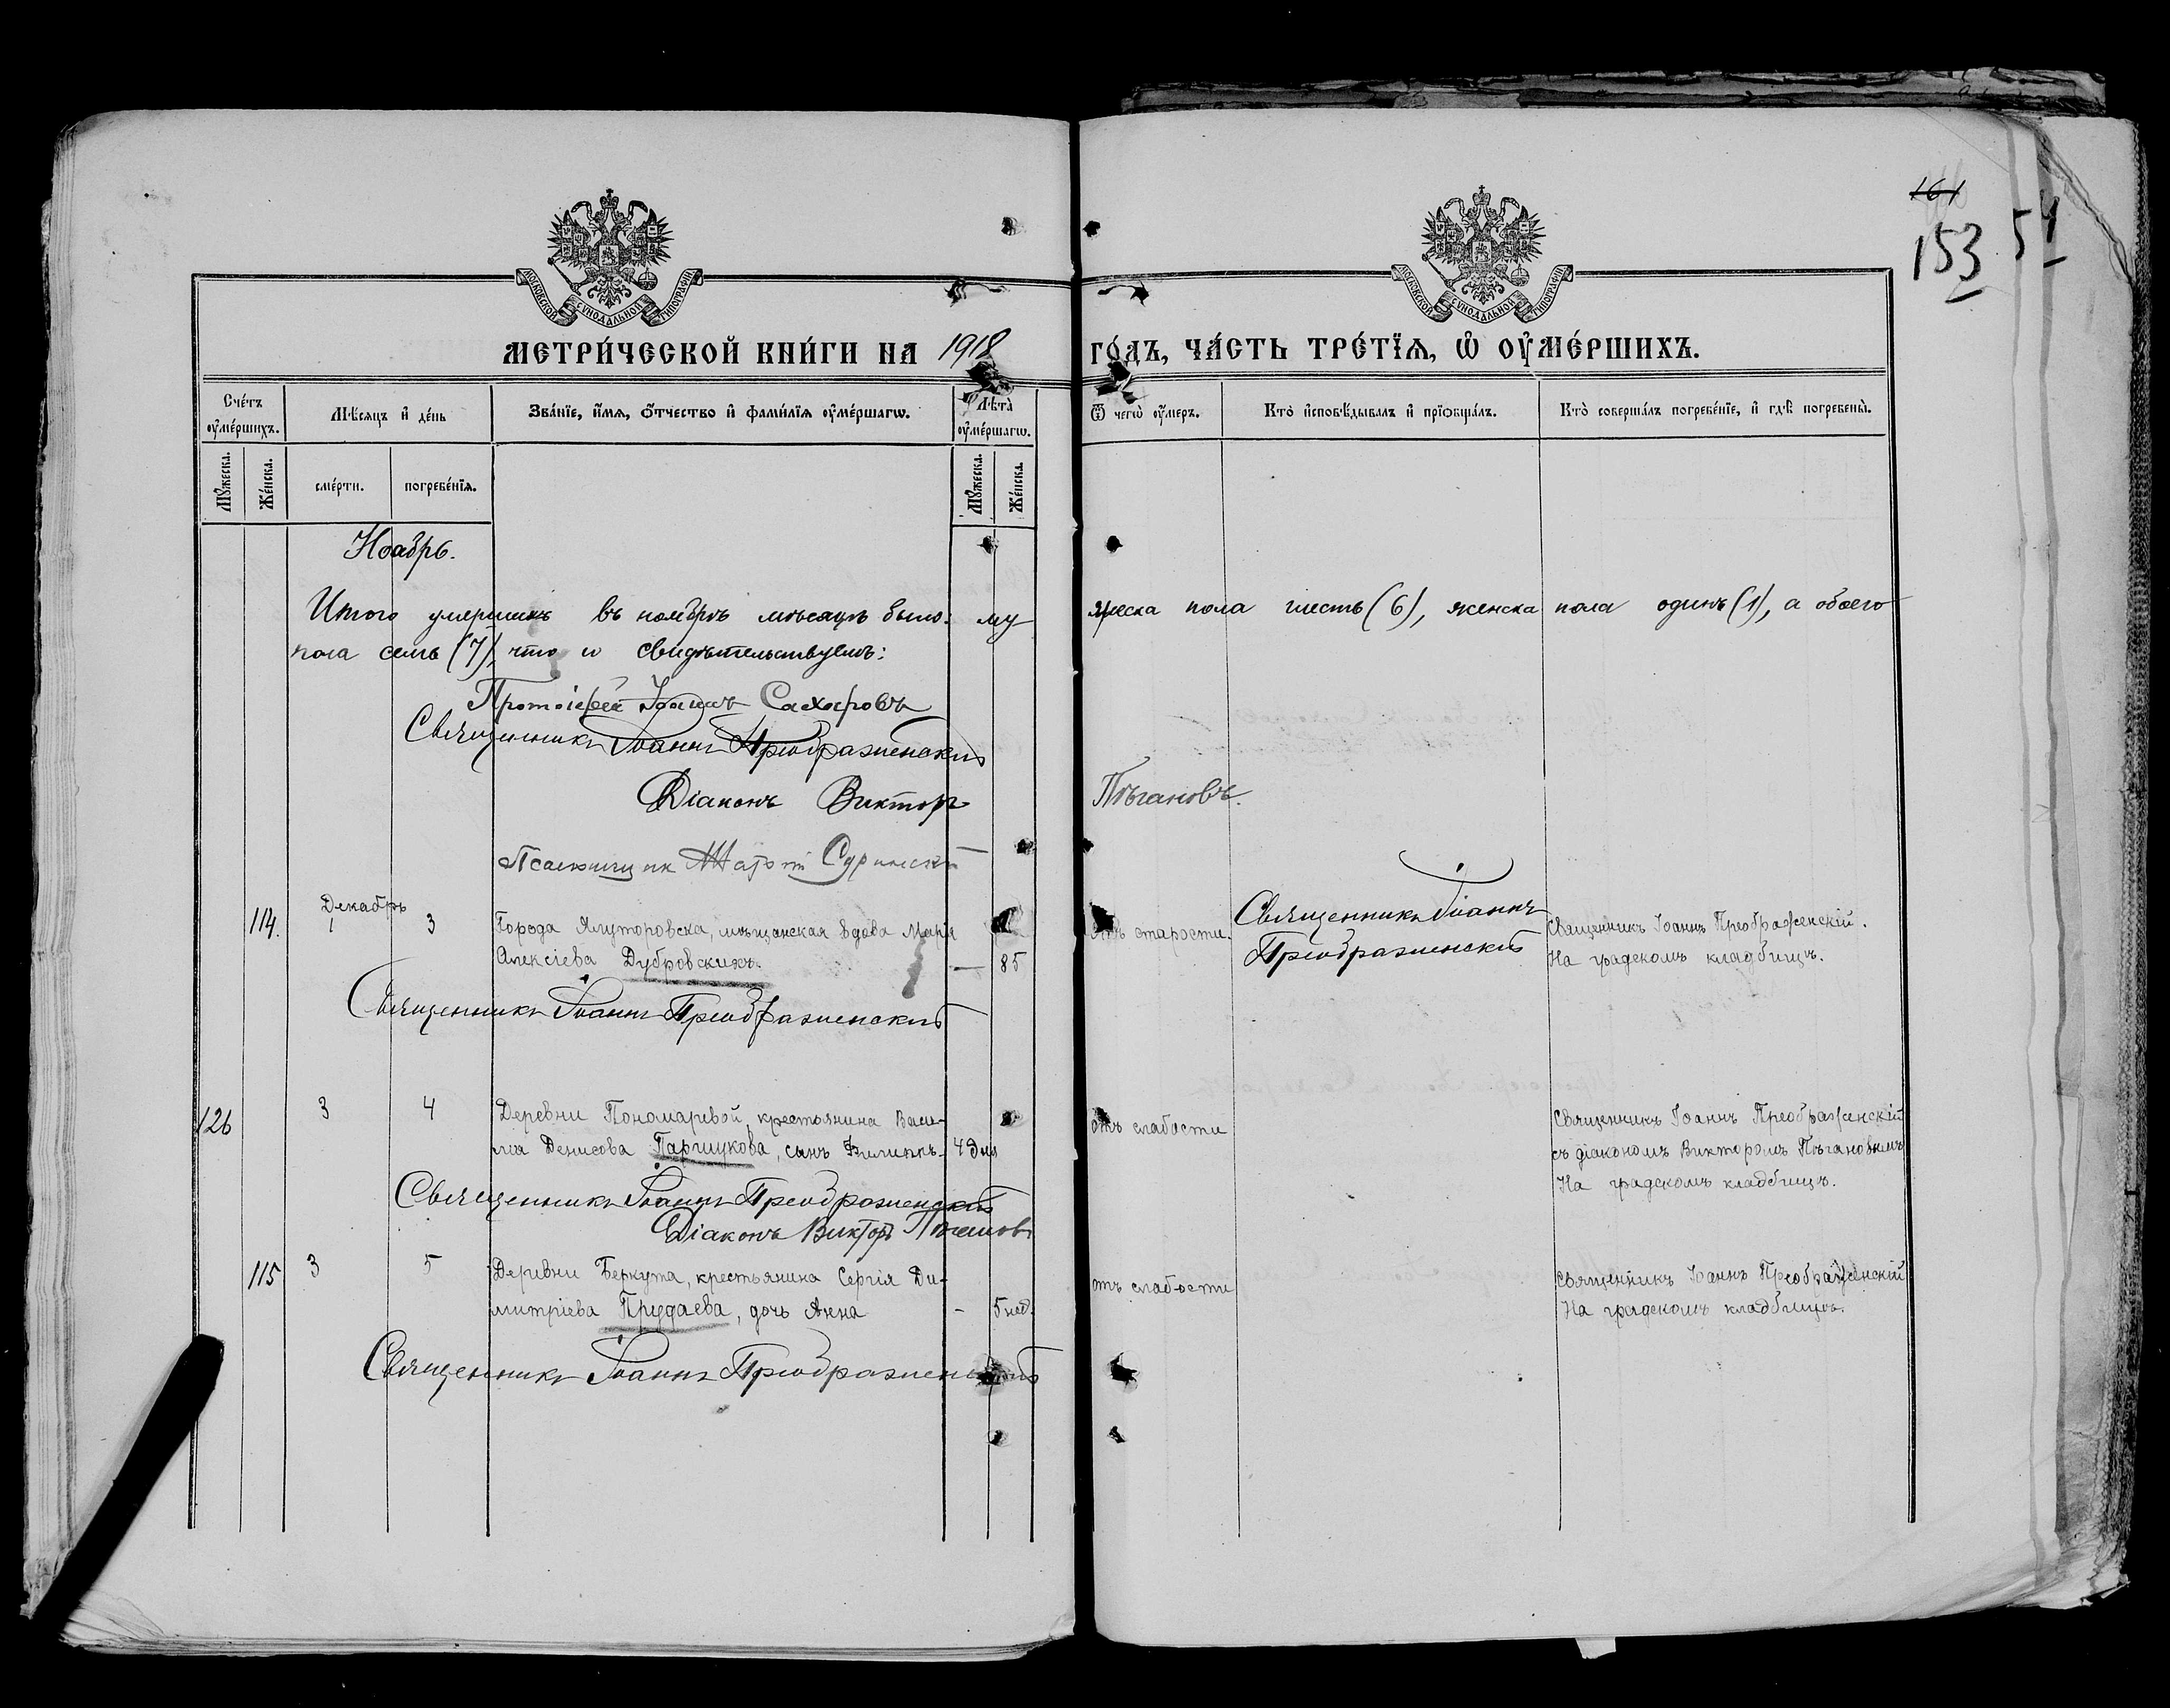 161
153 54
МОСКОВСКОЙ СѴНОДАЛЬНОЙ ТИПОГРАФІИ
МОСКОВСКОЙ СѴНОДАЛЬНОЙ ТИПОГРАФІИ
МЕТРИ́ЧЕСКОЙ КНИ́ГИ НА 1918 ГО́ДЪ, ЧА́СТЬ ТРЕ́ТЇѦ, Ѡ҆ ОУ҆МЕ́РШИХЪ.
Сче́тъ оу҆ме́ршихъ.
Мѣ́сѧцъ и҆ де́нь
Зва́нїе, и҆́мѧ, ѻ҆́тчество и҆ фами́лїѧ оу҆ме́ршагѡ.
Лѣ́та̀ оу҆ме́ршагѡ.
Ѿ чегѡ̀ оу҆́меръ.
Кто̀ и҆сповѣ́дывалъ и҆ прїѡбща́лъ.
Кто̀ соверша́лъ погребе́нїе, и҆ гдѣ̀ погребены̀.
Мꙋ́жеска.
Же́нска.
сме́рти.
погребе́нїѧ.
Мꙋ́жеска.
Же́нска.
Ноябрь.
Итого умершихъ въ ноябрѣ мѣсяцѣ было: мужеска пола шесть (6), женска пола одинъ (1), а обоего
пола семь (7), что и свидѣтельствуемъ:
Протоіерей Іоаннъ Сахаровъ
Священникъ Іоаннъ Преображенскій
Діаконъ Викторъ Пѣгановъ.
Псаломщик
Декабрь
114. 1 3 Города Ялуторовска, мѣщанская вдова Марія
Алексіева Дубровскихъ. — 85
отъ старости.
Священникъ Іоаннъ
Преображенскій
Священникъ Іоаннъ Преображенскій.
На градскомъ кладбищѣ.
Священникъ Іоаннъ Преображенскій
126 3 4 Деревни Пономаревой, крестьянина Васи-
лія Денисова Паршукова, сынъ Филиппъ. 4 дня
отъ слабости
Священникъ Іоаннъ Преображенскій
съ діакономъ Викторомъ Пѣгановымъ
На градскомъ кладбищѣ.
Священникъ Іоаннъ Преображенскій
Діаконъ Викторъ Пѣгановъ
115 3 5 Деревни Беркута, крестьянина Сергія Ди-
митріева Прудаева, дочь Анна – 5 нед.
отъ слабости
Священникъ Іоаннъ Преображенскій
На градскомъ кладбищѣ.
Священникъ Іоаннъ Преображенскій